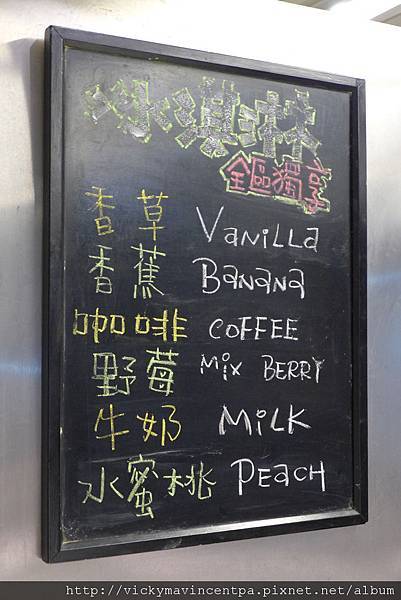 冰淇淋
全區獨享
香草 Vanilla
香蕉 Banana
咖啡 COFFEE
野莓 Mix BERRY
牛奶 MiLK
水蜜桃 PEACH
http://vickymavincentpa.pixnet.net/album